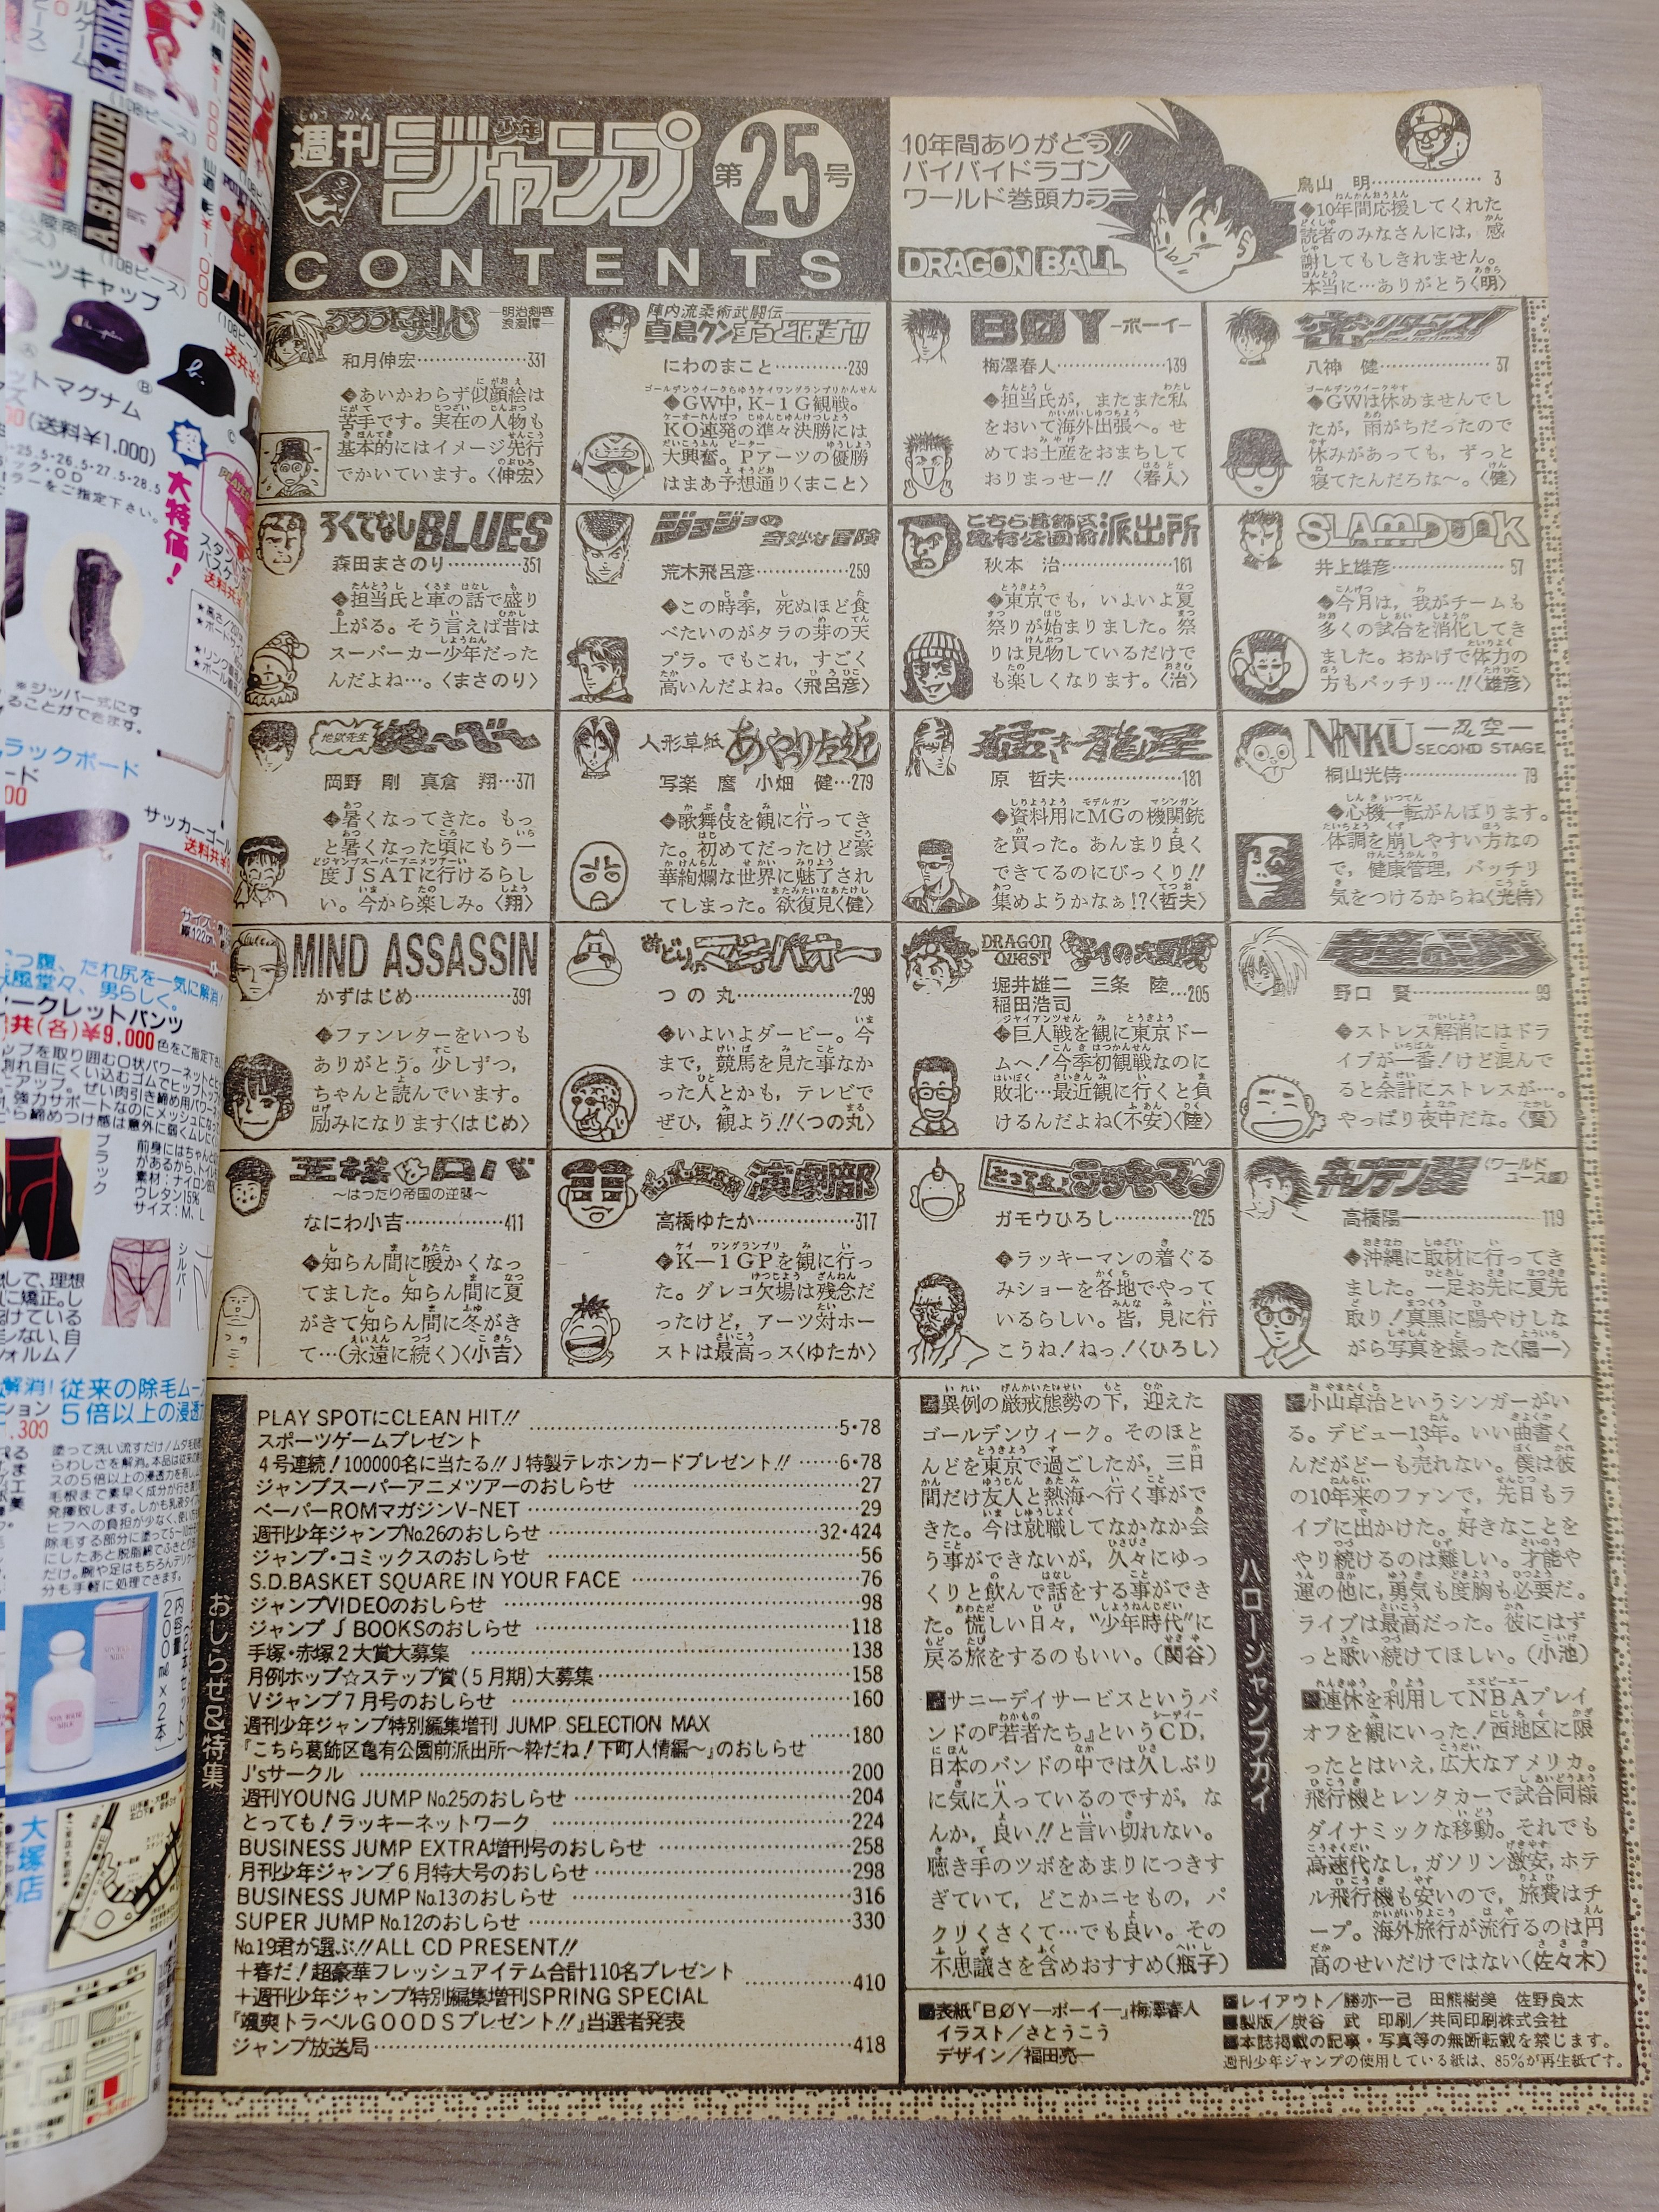 週刊少年ジャンプ 第25号
CONTENTS
10年間ありがとう!
バイバイドラゴン
ワールド巻頭カラー
DRAGON BALL
鳥山 明………………3
◆10年間応援してくれた
読者のみなさんには,感
謝してもしきれません。
本当に…ありがとう〈明〉
るろうに剣心 —明治剣客浪漫譚—
和月伸宏………………331
◆あいかわらず似顔絵は
苦手です。実在の人物も
基本的にはイメージ先行
でかいています。〈伸宏〉
陣内流柔術武闘伝
真島クンすっとばす!!
にわのまこと…………239
◆GW中,K-1G観戦。
KO連発の準々決勝には
大興奮。Pアーツの優勝
はまあ予想通り〈まこと〉
BØY—ボーイ—
梅澤春人………………139
◆担当氏が,またまた私
をおいて海外出張へ。せ
めてお土産をおまちして
おりまっせー!!〈春人〉
密・リターンズ!
八神 健………………37
◆GWは休めませんでし
たが,雨がちだったので
休みがあっても,ずっと
寝てたんだろな〜。〈健〉
ろくでなしBLUES
森田まさのり…………351
◆担当氏と車の話で盛り
上がる。そう言えば昔は
スーパーカー少年だった
んだよね…。〈まさのり〉
ジョジョの奇妙な冒険
荒木飛呂彦……………259
◆この時季,死ぬほど食
べたいのがタラの芽の天
プラ。でもこれ,すごく
高いんだよね。〈飛呂彦〉
こちら葛飾区亀有公園前派出所
秋本 治………………161
◆東京でも,いよいよ夏
祭りが始まりました。祭
りは見物しているだけで
も楽しくなります。〈治〉
SLAM DUNK
井上雄彦………………57
◆今月は,我がチームも
多くの試合を消化してき
ました。おかげで体力の
方もバッチリ…!!〈雄彦〉
地獄先生ぬ〜べ〜
岡野 剛 真倉 翔…371
◆暑くなってきた。もっ
と暑くなった頃にもう一
度JSATに行けるらし
い。今から楽しみ。〈翔〉
人形草紙あやつり左近
写楽 麿 小畑 健…279
◆歌舞伎を観に行ってき
た。初めてだったけど豪
華絢爛な世界に魅了され
てしまった。欲復見〈健〉
猛き龍星
原 哲夫………………181
◆資料用にMGの機関銃
を買った。あんまり良く
できてるのにびっくり!!
集めようかなぁ!?〈哲夫〉
NINKU —忍空—
SECOND STAGE
桐山光侍………………79
◆心機一転がんばります。
体調を崩しやすい方なの
で,健康管理,バッチリ
気をつけるからね〈光侍〉
MIND ASSASSIN
かずはじめ……………391
◆ファンレターをいつも
ありがとう。少しずつ,
ちゃんと読んでいます。
励みになります〈はじめ〉
みどりのマキバオー
つの丸…………………299
◆いよいよダービー。今
まで,競馬を見た事なか
った人とかも,テレビで
ぜひ,観よう!!〈つの丸〉
DRAGON QUEST ダイの大冒険
堀井雄二 三条 陸
稲田浩司…205
◆巨人戦を観に東京ドー
ムへ!今季初観戦なのに
敗北…最近観に行くと負
けるんだよね(不安)〈陸〉
野口 賢………………99
◆ストレス解消にはドラ
イブが一番!けど混んで
ると余計にストレスが…。
やっぱり夜中だな。〈賢〉
王様はロバ
〜はったり帝国の逆襲〜
なにわ小吉……………411
◆知らん間に暖かくなっ
てました。知らん間に夏
がきて知らん間に冬がき
て…(永遠に続く)〈小吉〉
演劇部
高橋ゆたか……………317
◆K—1GPを観に行っ
た。グレコ欠場は残念だ
ったけど,アーツ対ホー
ストは最高っス〈ゆたか〉
とっても!ラッキーマン
ガモウひろし…………225
◆ラッキーマンの着ぐる
みショーを各地でやって
いるらしい。皆,見に行
こうね!ねっ!〈ひろし〉
キャプテン翼〈ワールドユース編〉
高橋陽一………………119
◆沖縄に取材に行ってき
ました。一足お先に夏先
取り!真黒に陽やけしな
がら写真を撮った〈陽一〉
おしらせ&特集
PLAY SPOTにCLEAN HIT!!
スポーツゲームプレゼント……5・78
4号連続!100000名に当たる!!J特製テレホンカードプレゼント!!……6・78
ジャンプスーパーアニメツアーのおしらせ……27
ペーパーROMマガジンV-NET……29
週刊少年ジャンプNo.26のおしらせ……32・424
ジャンプ・コミックスのおしらせ……56
S.D.BASKET SQUARE IN YOUR FACE……76
ジャンプVIDEOのおしらせ……98
ジャンプ J BOOKSのおしらせ……118
手塚・赤塚2大賞大募集……138
月例ホップ☆ステップ賞(5月期)大募集……158
Vジャンプ7月号のおしらせ……160
週刊少年ジャンプ特別編集増刊 JUMP SELECTION MAX
『こちら葛飾区亀有公園前派出所〜粋だね!下町人情編〜』のおしらせ……180
J'sサークル……200
週刊YOUNG JUMP No.25のおしらせ……204
とっても!ラッキーネットワーク……224
BUSINESS JUMP EXTRA増刊号のおしらせ……258
月刊少年ジャンプ6月特大号のおしらせ……298
BUSINESS JUMP No.13のおしらせ……316
SUPER JUMP No.12のおしらせ……330
No.19君が選ぶ!!ALL CD PRESENT!!
+春だ!超豪華フレッシュアイテム合計110名プレゼント……410
+週刊少年ジャンプ特別編集増刊SPRING SPECIAL
『颯爽トラベルGOODSプレゼント!!』当選者発表
ジャンプ放送局……418
ハロージャンプガイ
■異例の厳戒態勢の下,迎えた
ゴールデンウィーク。そのほと
んどを東京で過ごしたが,三日
間だけ友人と熱海へ行く事がで
きた。今は就職してなかなか会
う事ができないが,久々にゆっ
くりと飲んで話をする事ができ
た。慌しい日々,"少年時代"に
戻る旅をするのもいい。(関谷)
■サニーデイサービスというバ
ンドの『若者たち』というCD,
日本のバンドの中では久しぶり
に気に入っているのですが,な
んか,良い!!と言い切れない。
聴き手のツボをあまりにつきす
ぎていて,どこかニセもの,パ
クリくさくて…でも良い。その
不思議さを含めおすすめ(瓶子)
■小山卓治というシンガーがい
る。デビュー13年。いい曲書く
んだがどーも売れない。僕は彼
の10年来のファンで,先日もラ
イブに出かけた。好きなことを
やり続けるのは難しい。才能や
運の他に,勇気も度胸も必要だ。
ライブは最高だった。彼にはず
っと歌い続けてほしい。(小池)
■連休を利用してNBAプレイ
オフを観にいった!西地区に限
ったとはいえ,広大なアメリカ。
飛行機とレンタカーで試合同様
ダイナミックな移動。それでも
高速代なし,ガソリン激安,ホテ
ル飛行機も安いので,旅費はチ
ープ。海外旅行が流行るのは円
高のせいだけではない(佐々木)
■表紙「BØY—ボーイ—」梅澤春人
イラスト/さとうこう
デザイン/福田亮一
■レイアウト/勝亦一己 田熊樹美 佐野良太
■製版/炭谷 武 印刷/共同印刷株式会社
■本誌掲載の記事・写真等の無断転載を禁じます。
週刊少年ジャンプの使用している紙は,85%が再生紙です。
K.RUKA
A.SENDOH
HANAMICHI.
(108ピース)
ーツキャップ
ットマグナム
(送料¥1,000)
超
大特価!
※ジッパー式にす
ることができます。
ラックボード
サッカーゴール
ークレットパンツ
共(各)¥9,000
ブラック
シルバー
従来の除毛ムー
5倍以上の浸透
内容量
200ml×2本
大塚店